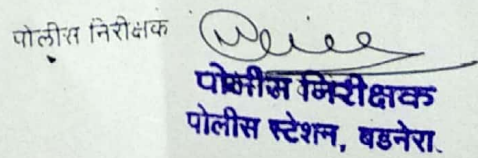 पोलीस निरीक्षक
पोलीस निरीक्षक
पोलीस स्टेशन, बडनेरा.